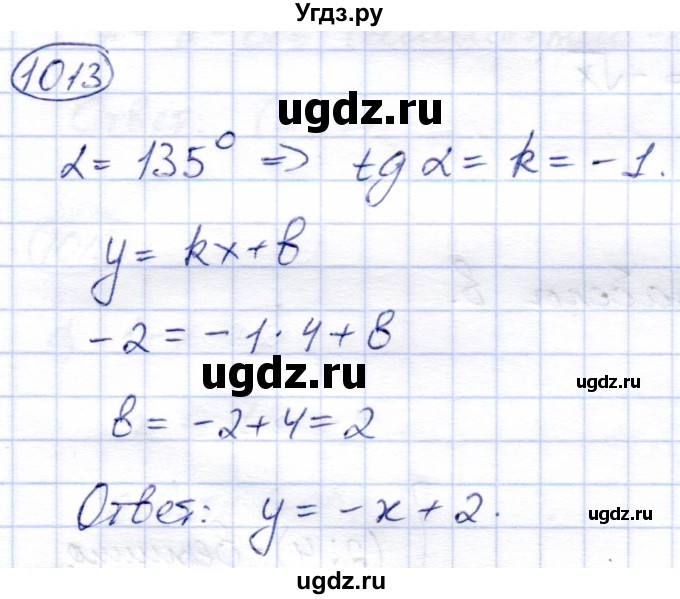 Угдз.ру
1013
ugdz.ru
α = 135° => tg α = k = -1.
y = kx + b
-2 = -1·4 + b
ugdz.ru
ugdz.ru
b = -2 + 4 = 2
Ответ: y = -x + 2.
ugdz.ru
ugdz.ru